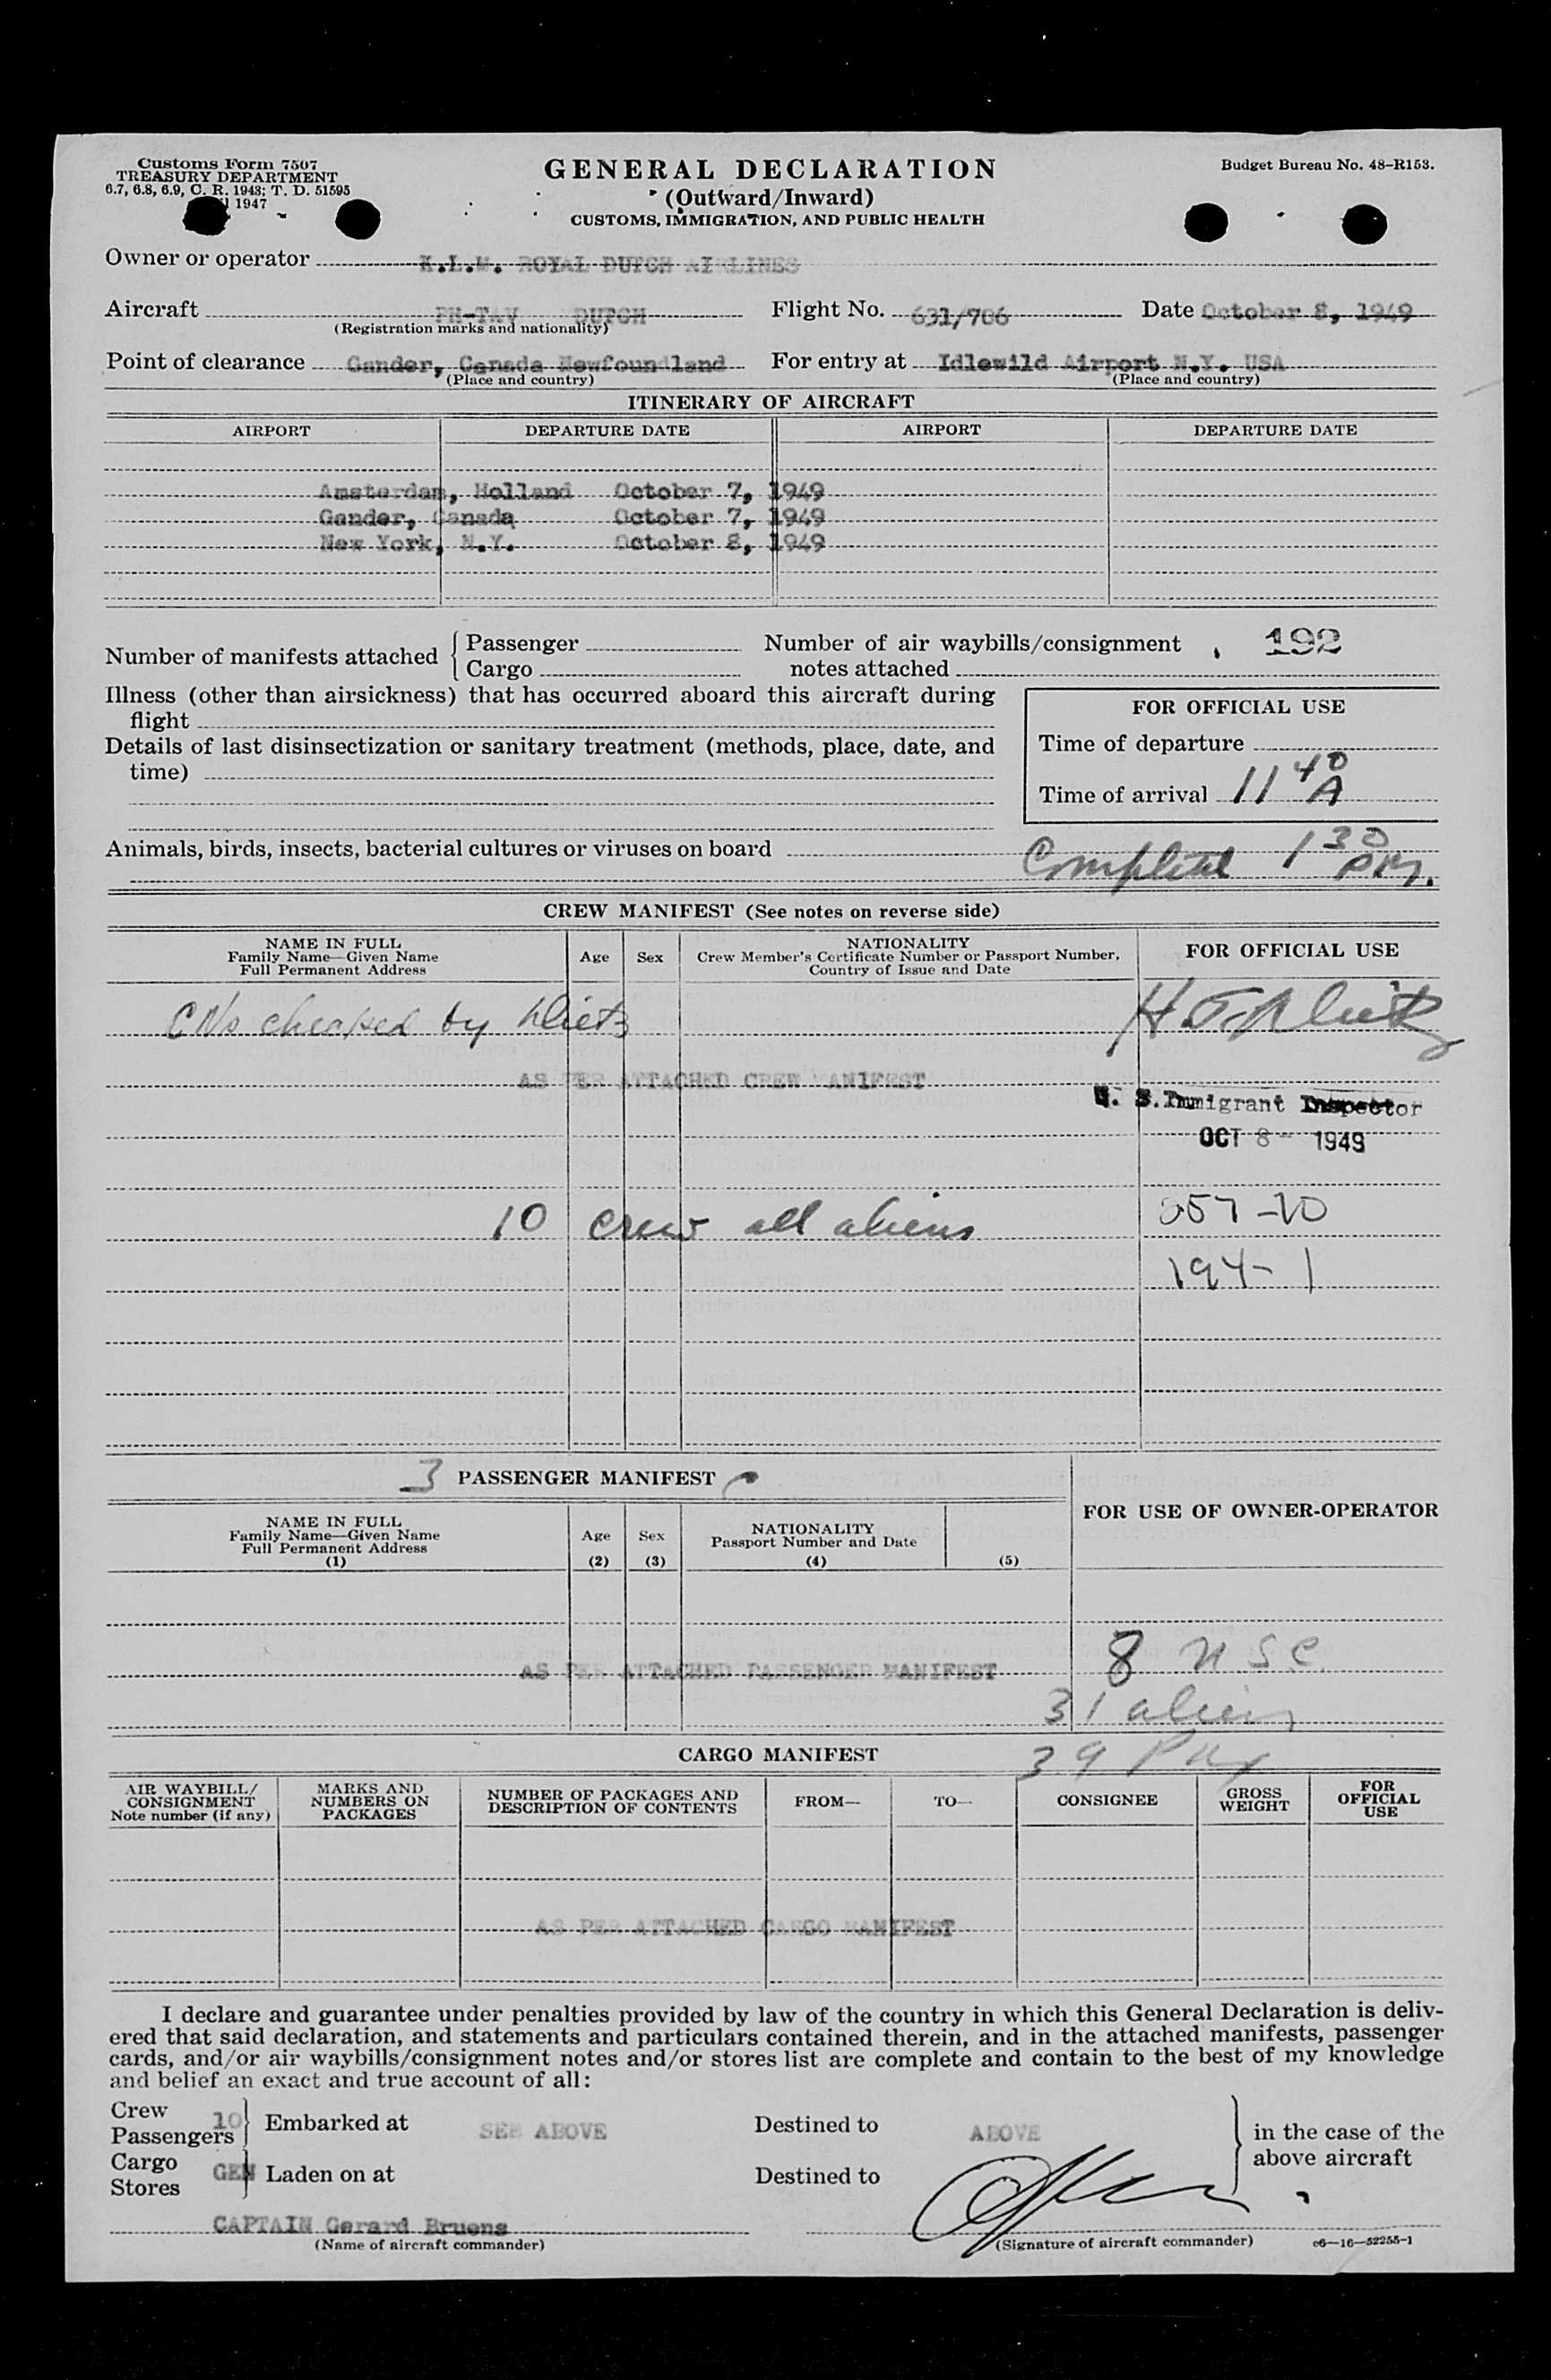 Customs Form 7507
TREASURY DEPARTMENT
6.7, 6.8, 6.9, C. R. 1943; T. D. 51595
1947
GENERAL DECLARATION
(Outward/Inward)
CUSTOMS, IMMIGRATION, AND PUBLIC HEALTH
Budget Bureau No. 48-R153.
Owner or operator K.L.M. ROYAL DUTCH AIRLINES
Aircraft PH-TAV DUTCH Flight No. 631/706 Date October 8, 1949
(Registration marks and nationality)
Point of clearance Gander, Canada Newfoundland For entry at Idlewild Airport N.Y. USA
(Place and country) (Place and country)
ITINERARY OF AIRCRAFT
AIRPORT DEPARTURE DATE AIRPORT DEPARTURE DATE
Amsterdam, Holland October 7, 1949
Gander, Canada October 7, 1949
New York, N.Y. October 8, 1949
Number of manifests attached { Passenger
Cargo
Number of air waybills/consignment
notes attached
192
Illness (other than airsickness) that has occurred aboard this aircraft during
flight
Details of last disinsectization or sanitary treatment (methods, place, date, and
time)
FOR OFFICIAL USE
Time of departure
Time of arrival 11 40 A
Animals, birds, insects, bacterial cultures or viruses on board
Completed 1 30 PM.
CREW MANIFEST (See notes on reverse side)
NAME IN FULL
Family Name—Given Name
Full Permanent Address
Age
Sex
NATIONALITY
Crew Member's Certificate Number or Passport Number,
Country of Issue and Date
FOR OFFICIAL USE
checked by
AS PER ATTACHED CREW MANIFEST
U. S. Immigrant Inspector
OCT 8 - 1949
10 crew all aliens
194-1
3 PASSENGER MANIFEST
NAME IN FULL
Family Name—Given Name
Full Permanent Address
(1)
Age
(2)
Sex
(3)
NATIONALITY
Passport Number and Date
(4)
(5)
FOR USE OF OWNER-OPERATOR
AS PER ATTACHED PASSENGER MANIFEST
8 U.S.C.
31 aliens
39 Pax
CARGO MANIFEST
AIR WAYBILL/
CONSIGNMENT
Note number (if any)
MARKS AND
NUMBERS ON
PACKAGES
NUMBER OF PACKAGES AND
DESCRIPTION OF CONTENTS
FROM—
TO—
CONSIGNEE
GROSS
WEIGHT
FOR
OFFICIAL
USE
AS PER ATTACHED CARGO MANIFEST
I declare and guarantee under penalties provided by law of the country in which this General Declaration is deliv-
ered that said declaration, and statements and particulars contained therein, and in the attached manifests, passenger
cards, and/or air waybills/consignment notes and/or stores list are complete and contain to the best of my knowledge
and belief an exact and true account of all:
Crew 10
Passengers } Embarked at SEE ABOVE Destined to ABOVE
Cargo GEN
Stores } Laden on at Destined to
} in the case of the
above aircraft
CAPTAIN Gerard Bruens
(Name of aircraft commander)
(Signature of aircraft commander)
c6—16—52255-1